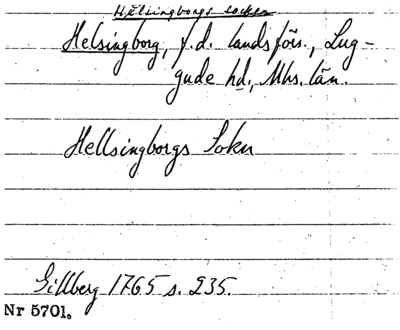 Helsingborgs socken
Helsingborg, f.d. landsförs., Lug-
gude hd., Mhs. län.
Hellsingborgs Sokn
Gillberg 1765 s. 235.
Nr 5701.